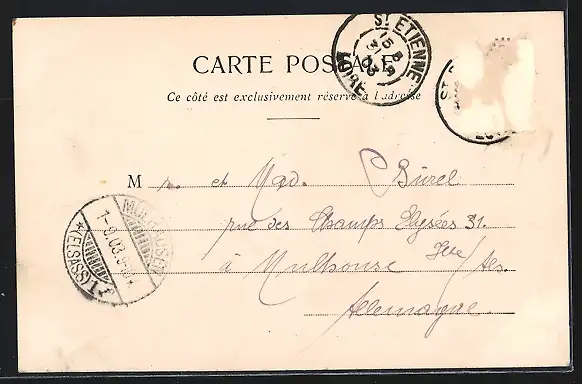 CARTE POSTALE
Ce côté est exclusivement réservé à l'adresse
ST ETIENNE
LOIRE
M r. et Mad. Burel
rue des Champs Elysées 31.
à Mulhouse Hte/Als.
Allemagne.
MÜLHAUSEN
1-9.03
(ELSASS)